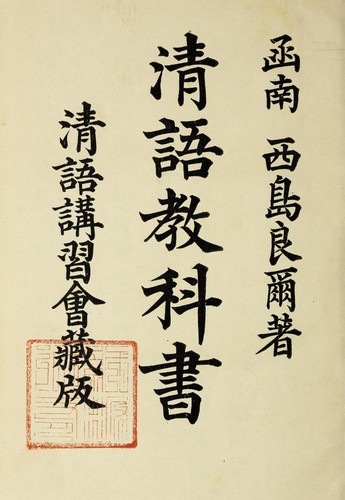 函南 西島良爾著
清語教科書
清語講習會藏版